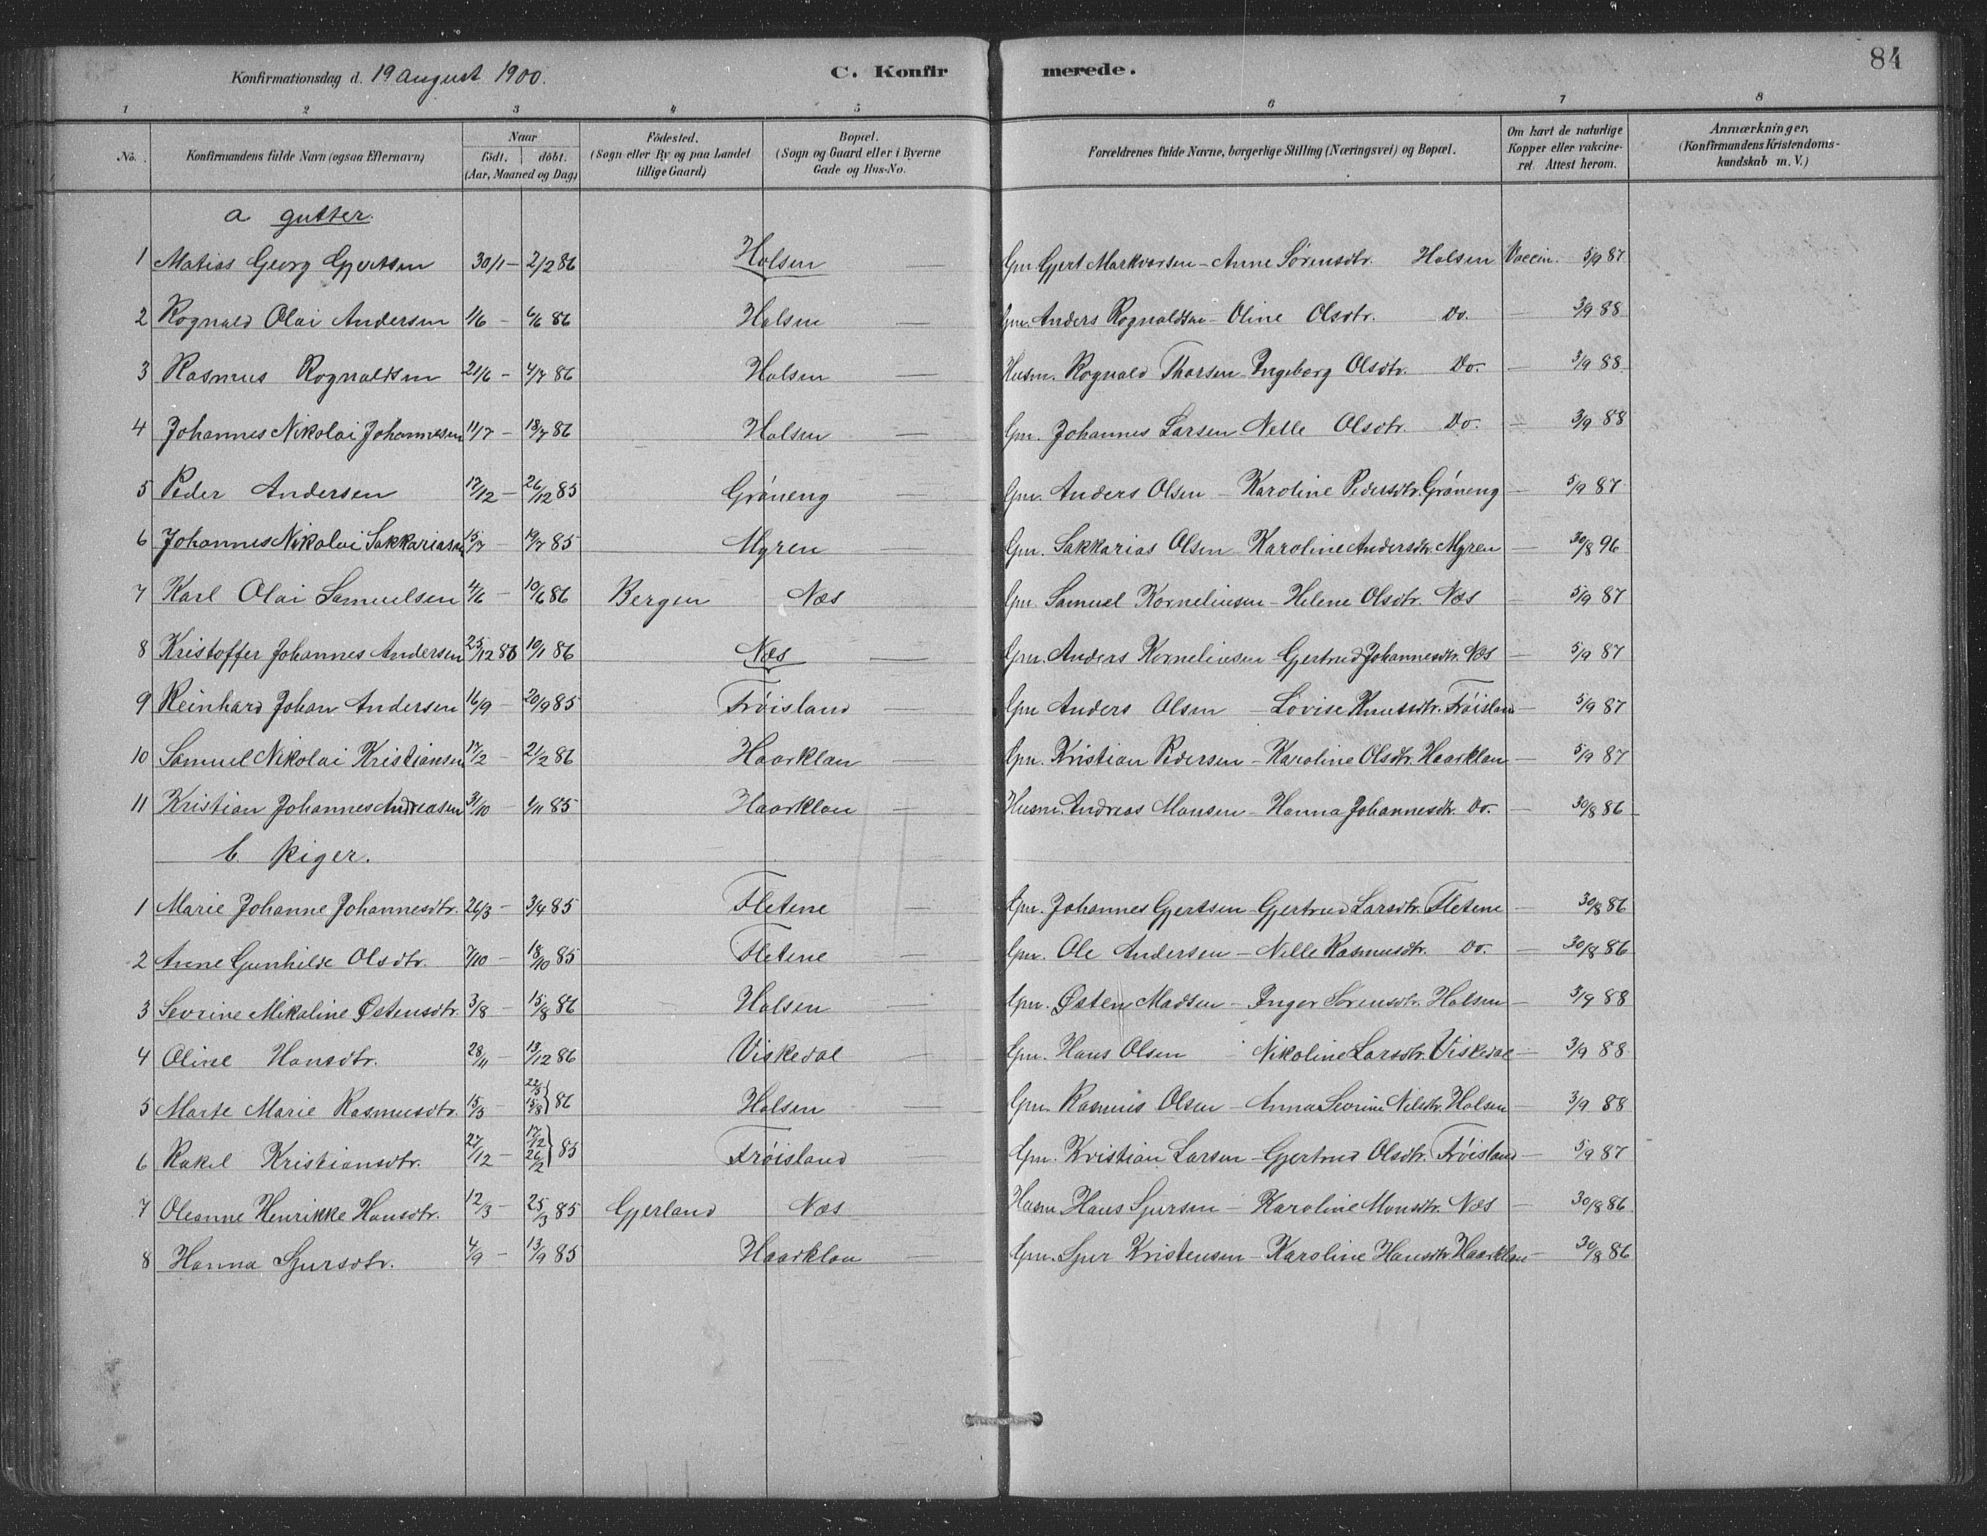 84
Konfirmationsdag d. 19 August 1900. C. Konfir merede.
1 2 3 4 5 6 7 8
No. Konfirmandens fulde Navn (ogsaa Efternavn) Naar födt. döbt. (Aar, Maaned og Dag) Födested. (Sogn eller By og paa Landet tillige Gaard) Bopæl. (Sogn og Gaard eller i Byerne Gade og Hus-No. Forældrenes fulde Navne, borgerlige Stilling (Næringsvei) og Bopæl. Om havt de naturlige Kopper eller vakcineret. Attest herom. Anmærkninger, (Konfirmandens Kristendomskundskab m. V.)
a gutter.
1 Matias Georg Gjertsen 30/1 – 2/2 86 Holsen Gm. Gjert Markvorsen – Anne Sørensdtr. Holsen Vaccin. 5/9 87
2 Rognald Olai Andersen 1/6 – 6/6 86 Holsen — Gm. Anders Rognaldsen – Oline Olsdtr. Do. — 3/9 88
3 Rasmus Rognaldsen 21/6 – 4/7 86 Holsen — Husm. Rognald Thorsen – Ingeborg Olsdtr. Do. — 3/9 88
4 Johannes Nikolai Johannesen 11/7 – 18/7 86 Holsen — Gm. Johannes Larsen – Nelle Olsdtr. Do. " 3/9 88
5 Peder Andersen 17/12 – 26/12 85 Gröneng — Gm. Anders Olsen – Karoline Pedersdtr. Gröneng — 5/9 87
6 Johannes Nikolai Sakkariasen 15/7 – 19/7 85 Myren — Gm. Sakkarias Olsen – Karoline Andersdtr. Myren — 30/8 96
7 Karl Olai Samuelsen 4/6 – 10/6 86 Bergen Næs — Gm. Samuel Korneliusen – Helene Olsdtr. Næs — 5/9 87
8 Kristoffer Johannes Andersen 25/12 85 10/1 86 Næs — Gm. Anders Korneliusen – Gjertrud Johannesdtr. Næs — 5/9 87
9 Reinhard Johan Andersen 16/9 – 20/9 85 Fröisland — Gm Anders Olsen – Lovise Knutsdtr. Fröisland — 5/9 87
10 Samuel Nikolai Kristiansen 17/2 – 21/2 86 Haarklau — Gm. Kristian Pedersen – Karoline Olsdtr. Haarklau — 5/9 87
11 Kristian Johannes Andreasen 31/10 – 1/11 85 Haarklau — Husm. Andreas Monsen – Hanna Johannesdtr. Do. — 30/8 86
b. piger.
1 Marie Johanne Johannesdtr. 26/3 – 3/4 85 Fletene — Gm. Johannes Gjertsen – Gjertrud Larsdtr. Fletene — 30/8 86
2 Anne Gunhilde Olsdtr. 7/10 – 18/10 85 Fletene — Gm. Ole Andersen – Nelle Rasmusdtr. Do. — 30/8 86
3 Sevrine Mikaline Østensdtr. 3/8 – 15/8 86 Holsen — Gm. Østen Madsen – Inger Sørensdtr. Holsen — 3/9 88
4 Oline Hansdtr. 28/11 – 13/12 86 Viskedal — Gm. Hans Olsen Nikoline Larsdtr. Viskedal — 3/9 88
5 Marte Marie Rasmusdtr. 15/3 – 22/3 15/8 } 86 Holsen — Gm. Rasmus Olsen – Anna Sevrine Nilsdtr. Holsen — 3/9 88
6 Rakel Kristiansdtr. 27/12 – 17/12 26/2 } 85 Fröisland — Gm. Kristian Larsen – Gjertrud Olsdtr. Fröisland — 5/9 87
7 Oleanne Henrikke Hansdtr. 12/3 – 25/3 85 Gjerland Næs — Husm Hans Sjursen – Karoline Monsdtr. Næs — 30/8 86
8 Hanna Sjursdtr. 4/9 – 13/9 85 Haarklau — Gm. Sjur Kristensen – Karoline Hansdtr. Haarklau — 30/8 86